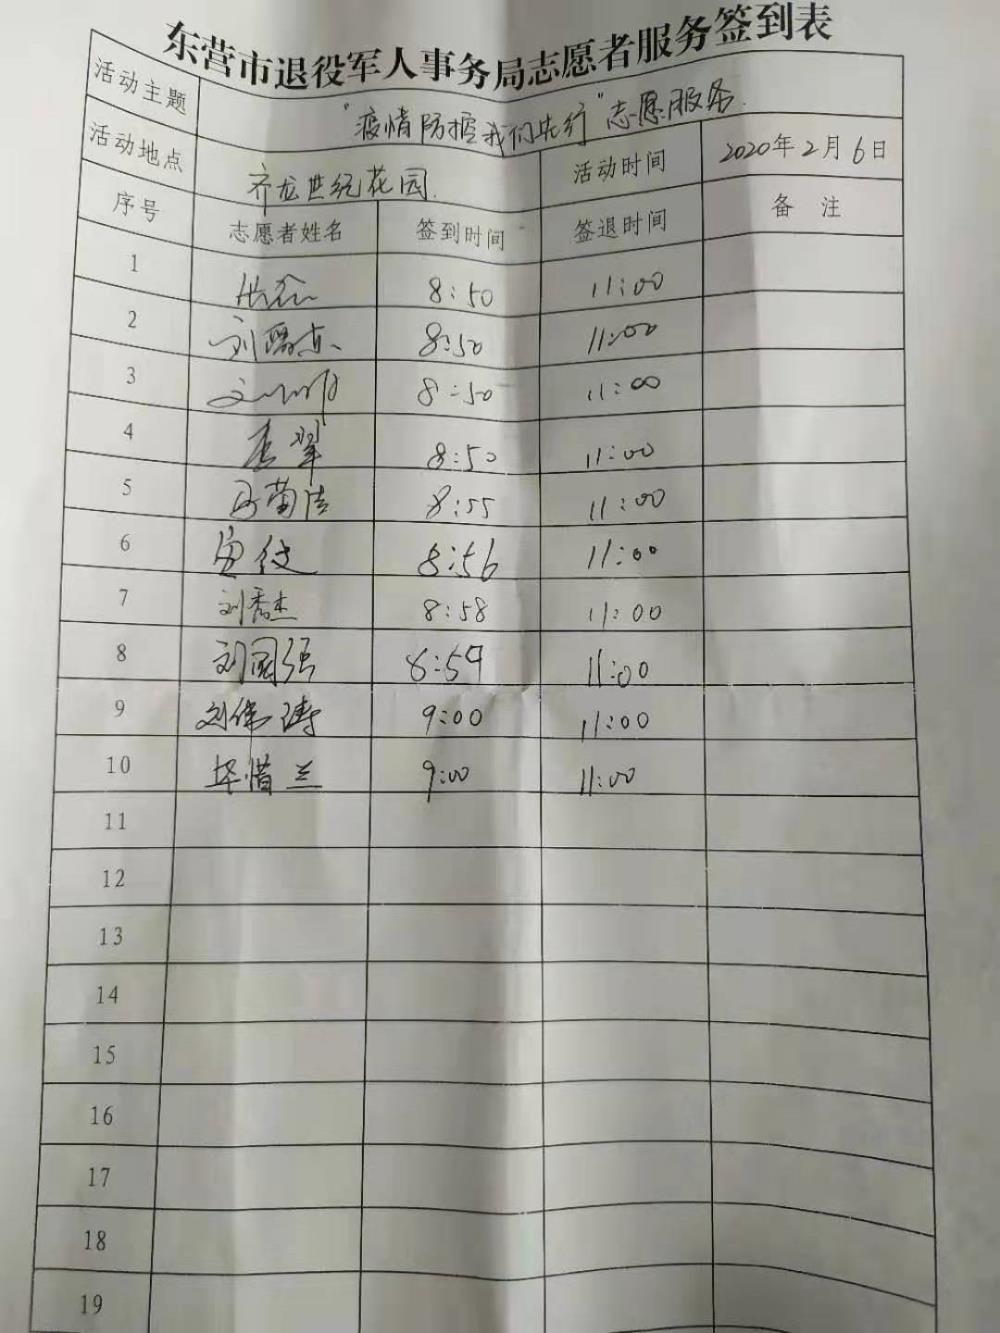 东营市退役军人事务局志愿者服务签到表
活动主题 "疫情防控我们先行"志愿服务
活动地点 齐龙世纪花园 活动时间 2020年2月6日
序号 志愿者姓名 签到时间 签退时间 备 注
1 8:50 11:00
2 8:50 11:00
3 8:50 11:00
4 8:50 11:00
5 8:55 11:00
6 8:56 11:00
7 刘秀杰 8:58 11:00
8 刘国强 8:59 11:00
9 刘伟涛 9:00 11:00
10 毕惜兰 9:00 11:00
11
12
13
14
15
16
17
18
19